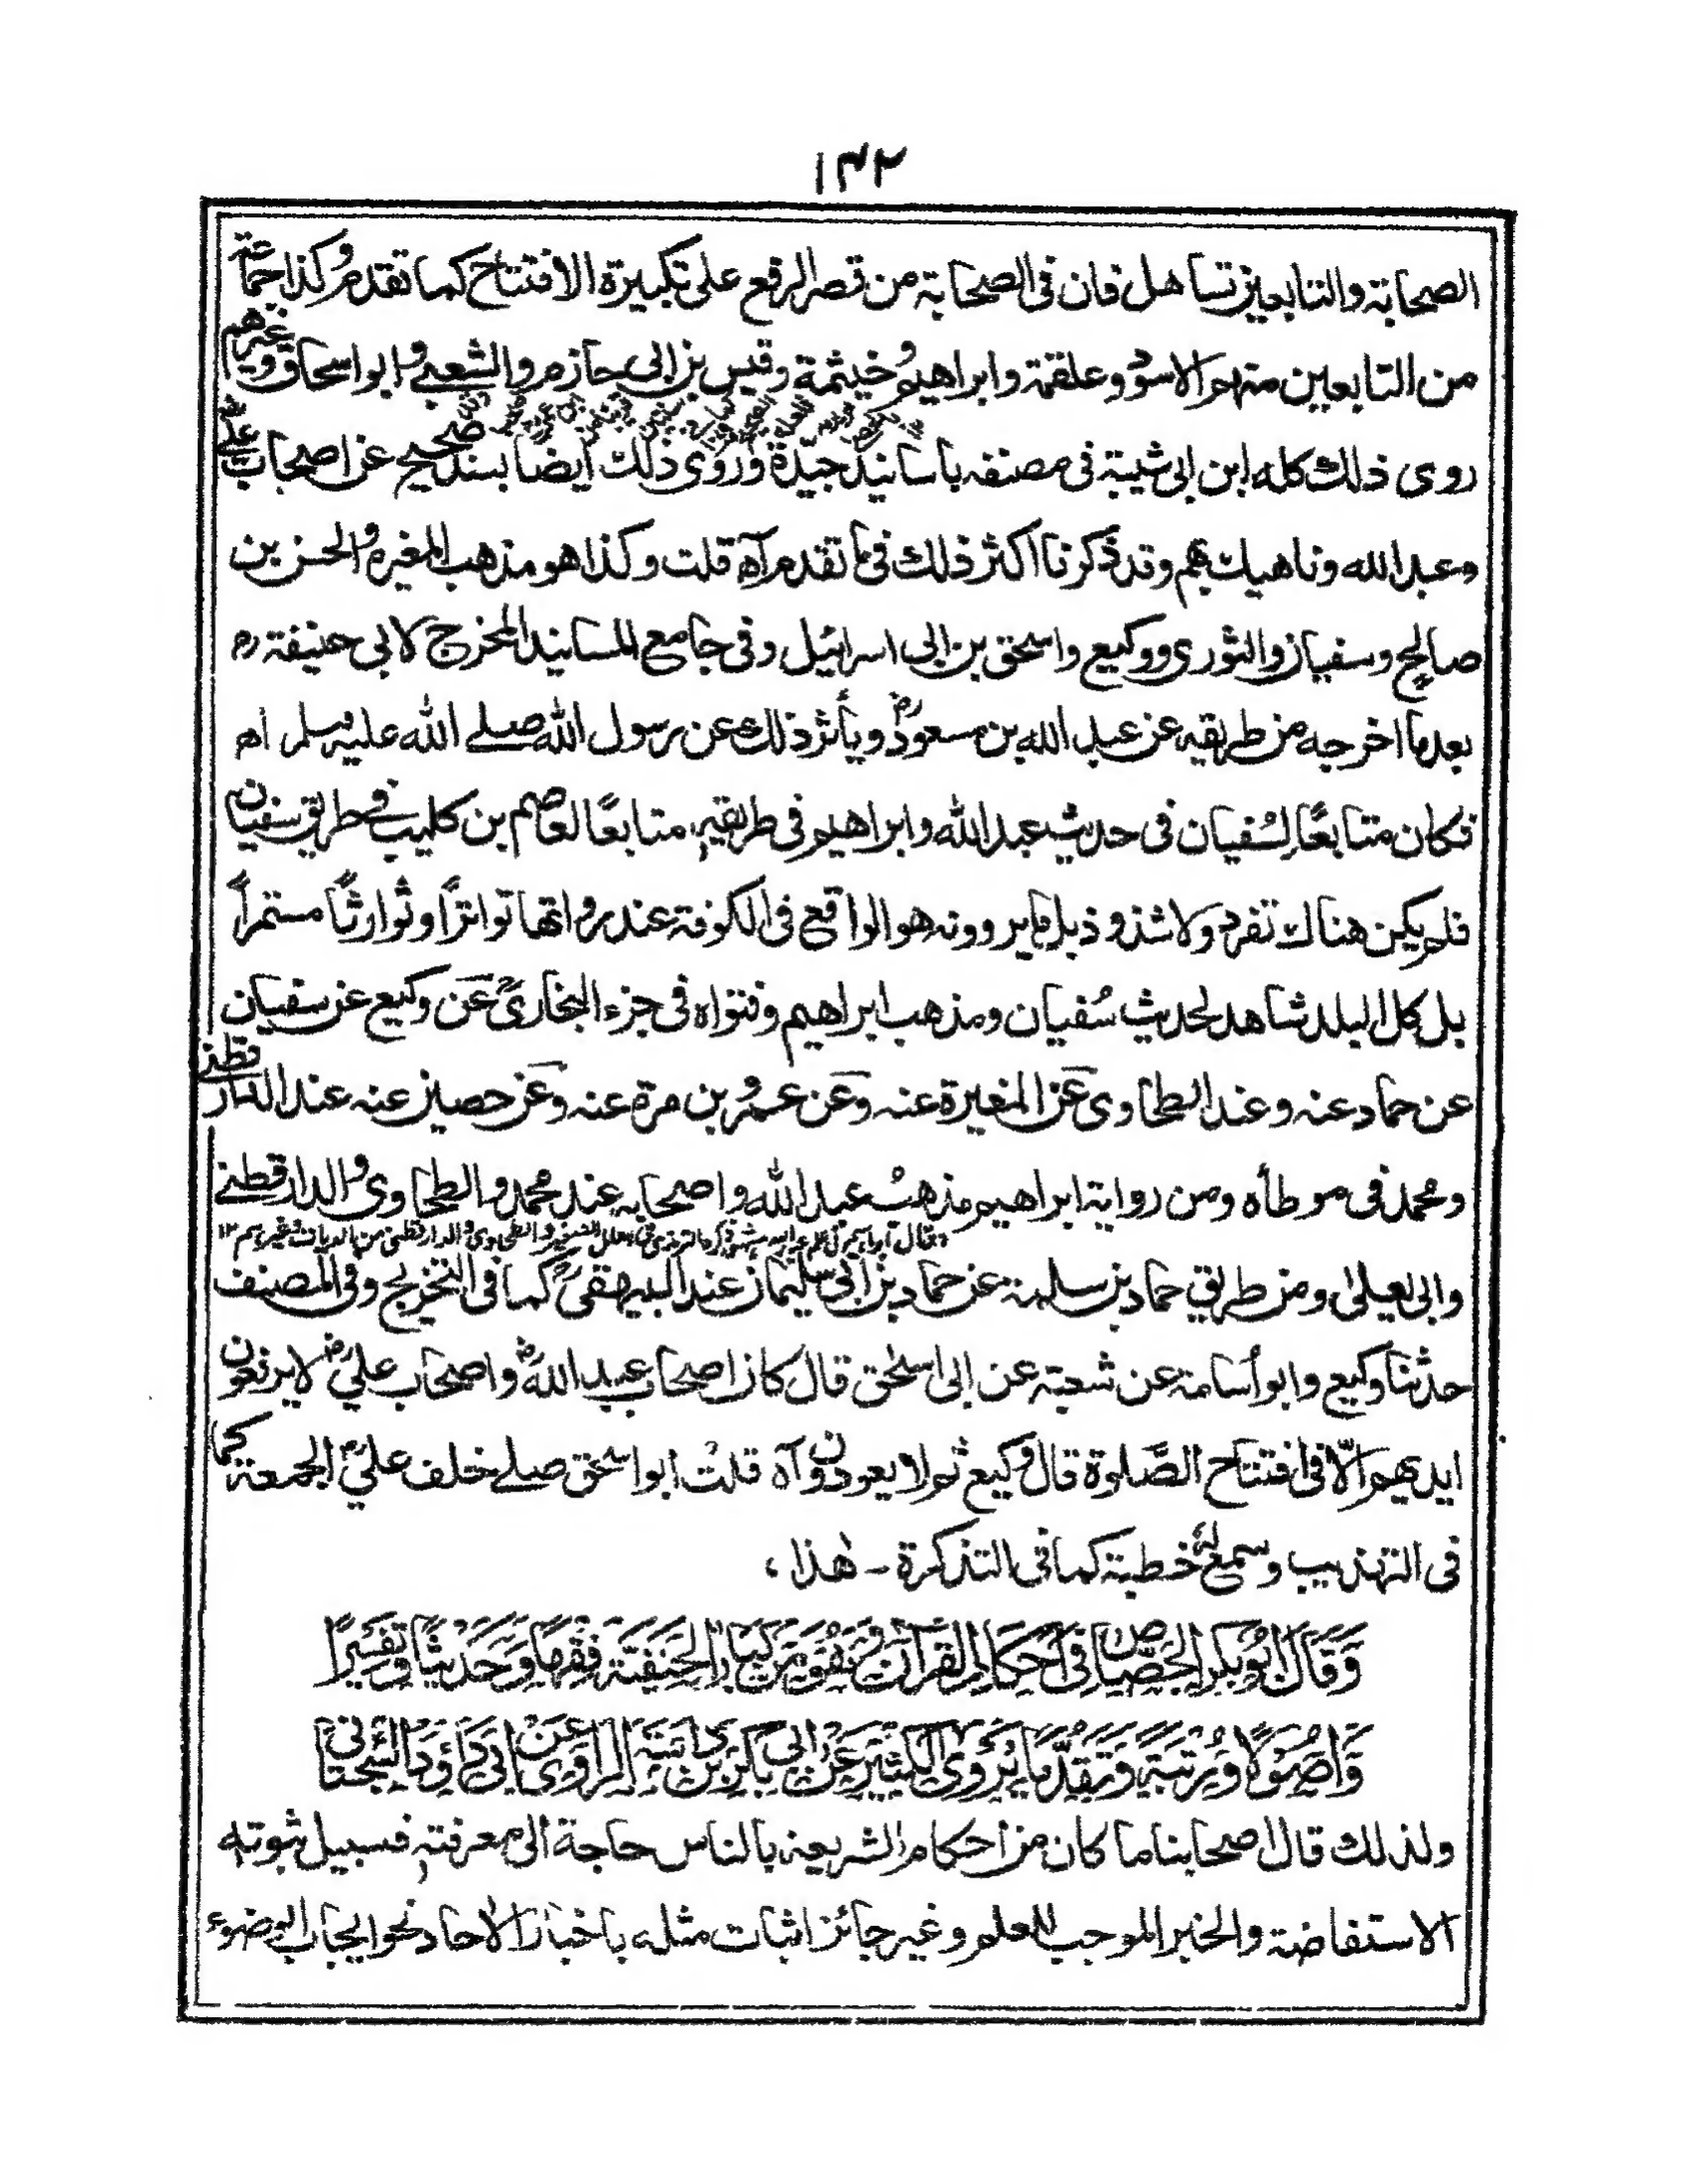 ١٤٢
الصحابة والتابعين تساهل فان فى الصحابة من قصر الرفع على تكبيرة الافتتاح كما تقدم وكذا جماعة
من التابعين منهم الاسود وعلقمة وابراهيم وخيثمة وقيس بن ابى حازم والشعبى وابو اسحاق وغيرهم
روى ذلك كله ابن ابى شيبة فى مصنفه باسانيد جيّدة وروى ذلك ايضًا بسند صحيح عن اصحاب على
وعبد الله وناهيك بهم وقد ذكرنا اكثر ذلك فيما تقدم آه قلت وكذا هو مذهب المغيرة والحسن بن
صالح وسفيان والثورى ووكيع واسحق بن ابى اسرائيل وفى جامع المسانيد المخرج لابى حنيفة رح
بعد ما اخرجه من طريقه عن عبد الله بن مسعود رض ويأثر ذلك عن رسول الله صلے الله عليه وسلم اه
فكان متابعًا لسُفيان فى حديث عبد الله وابراهيم فى طريقه، متابعًا لعاصم بن كليب فى طريق سفيان
فلم يكن هناك تفرد ولا شذوذ بل ما يروونه هو الواقع فى الكوفة عند رواتها تواترًا وتوارثًا مستمراً
بل كل البلد شاهد لحديث سُفيان ومذهب ابراهيم وفتواه فى جزء البخارىؒ عن وكيع عن سفيان
عن حماد عنه وعند الطحاوى عن المغيرة عنه وعن عمرو بن مرة عنه وعن حصين عنه عند الدارقطنى
ومحمد فى موطأه ومن رواية ابراهيم مذهب عبد الله واصحابه عند محمد والطحاوى والدارقطنے
وابى يعلىٰ ومن طريق حماد بن سلمة عن حماد بن ابى سليمان عند البيهقىؒ كما فى التخريج وفى المصنف
حدثنا وكيع وابو أسامة عن شعبة عن ابى اسحٰق قال كان اصحاب عبد اللهؓ واصحاب علىؓ لا يرفعون
ايديهم الّا فى افتتاح الصَّلوة قال وكيع ثم لا يعودون آه قلت ابو اسحٰق صلے خلف علىؓ الجمعة كما
فى التهذيب وسمع له خطبة كما فى التذكرة ـ هٰذا،
وَقَالَ ابُو بَكرِ الجَصَّاص فى احكام القرآن وَهُوَ مِن كبار الحنفيّة فِقهًا وَحَدِيثًا وتفسِيرًا
وَاصُولًا وَرُتبَةً وَتقدّمًا يَروى الكثيرَ عَن ابى بكر بن داسَة الراوى عَن ابى داؤد السجستانى
ولذلك قال اصحابنا ما كان من احكام الشريعة بالناس حاجة الى معرفته، فسبيل ثبوته
الاستفاضة والخبر الموجب للعلم وغير جائز اثبات مثله باخبار الاٰحاد نحو ايجاب الوضوء